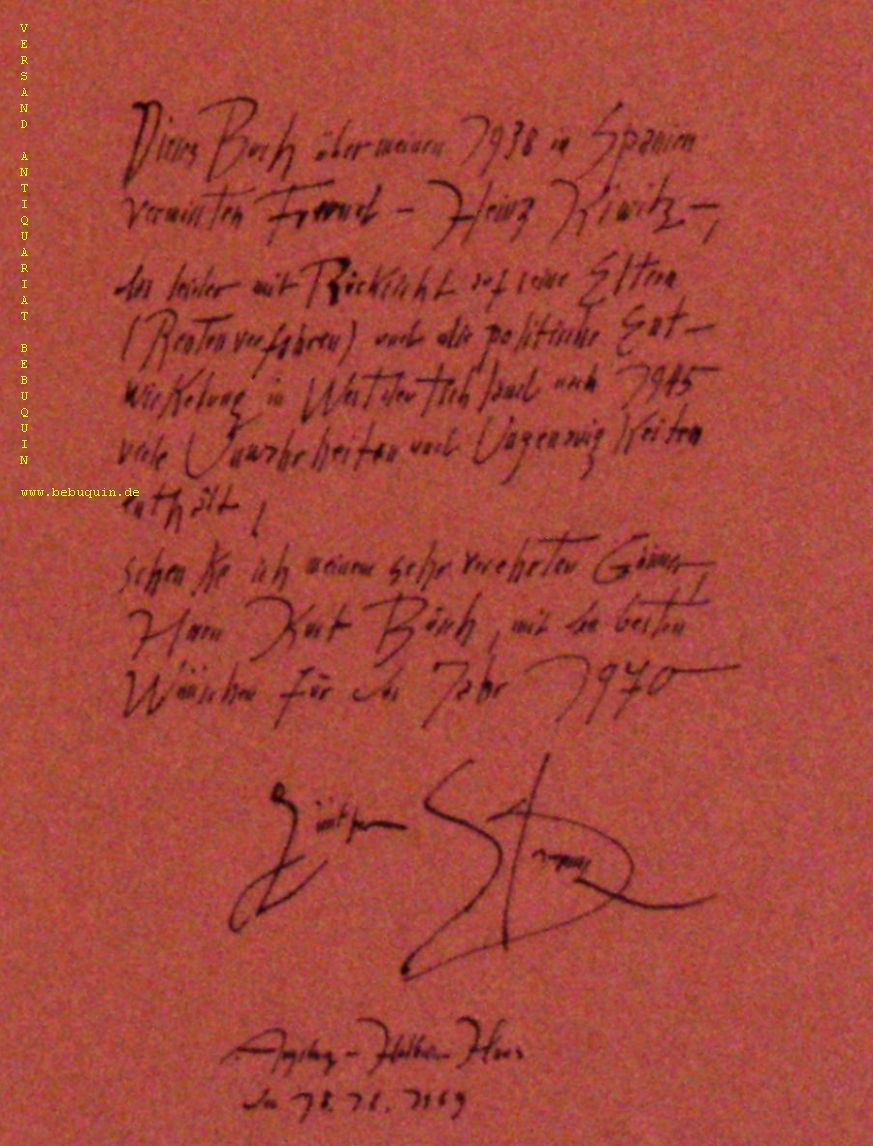 VERSAND ANTIQUARIAT BEBUQUIN
www.bebuquin.de
Dieses Buch über meinen 1938 in Spanien
vermissten Freund – Heinz Kiwitz –,
das leider mit Rücksicht auf seine Eltern
(Rentenverfahren) und die politische Ent-
wickelung in Westdeutschland nach 1945
viele Unwahrheiten und Ungenauigkeiten
enthält,
schenke ich meinem sehr verehrten Gönner,
Herrn Kurt Bösch, mit den besten
Wünschen für das Jahr 1970
Günther Strupp
Augsburg – Holbein-Haus